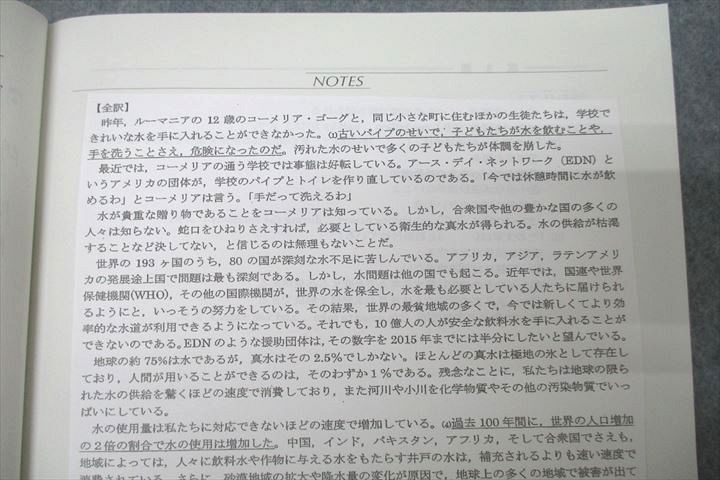 NOTES
【全訳】
昨年，ルーマニアの 12 歳のコーメリア・ゴーグと，同じ小さな町に住むほかの生徒たちは，学校で
きれいな水を手に入れることができなかった。(1)古いパイプのせいで，子どもたちが水を飲むことや，
手を洗うことさえ，危険になったのだ。汚れた水のせいで多くの子どもたちが体調を崩した。
最近では，コーメリアの通う学校では事態は好転している。アース・デイ・ネットワーク（EDN）と
いうアメリカの団体が，学校のパイプとトイレを作り直しているのである。「今では休憩時間に水が飲
めるわ」とコーメリアは言う。「手だって洗えるわ」
水が貴重な贈り物であることをコーメリアは知っている。しかし，合衆国や他の豊かな国の多くの
人々は知らない。蛇口をひねりさえすれば，必要としている衛生的な真水が得られる。水の供給が枯渇
することなど決してない，と信じるのは無理もないことだ。
世界の 193 ヶ国のうち，80 の国が深刻な水不足に苦しんでいる。アフリカ，アジア，ラテンアメリ
カの発展途上国で問題は最も深刻である。しかし，水問題は他の国でも起こる。近年では，国連や世界
保健機関(WHO)，その他の国際機関が，世界の水を保全し，水を最も必要としている人たちに届けられ
るようにと，いっそうの努力をしている。その結果，世界の最貧地域の多くで，今では新しくてより効
率的な水道が利用できるようになっている。それでも，10 億人の人が安全な飲料水を手に入れることが
できないのである。EDN のような援助団体は，その数字を 2015 年までには半分にしたいと望んでいる。
地球の約 75%は水であるが，真水はその 2.5%でしかない。ほとんどの真水は極地の氷として存在し
ており，人間が用いることができるのは，そのわずか 1％である。残念なことに，私たちは地球の限ら
れた水の供給を驚くほどの速度で消費しており，また河川や小川を化学物質やその他の汚染物質でいっ
ぱいにしている。
水の使用量は私たちに対応できないほどの速度で増加している。過去 100 年間に，世界の人口増加
の 2 倍の割合で水の使用は増加した。中国，インド，パキスタン，アフリカ，そして合衆国でさえも，
地域によっては，人々に飲料水や作物に与える水をもたらす井戸の水は，補充されるよりも速い速度で
消費されている。さらに，砂漠地域の拡大や降水量の変化が原因で，地球上の多くの地域で被害が出て